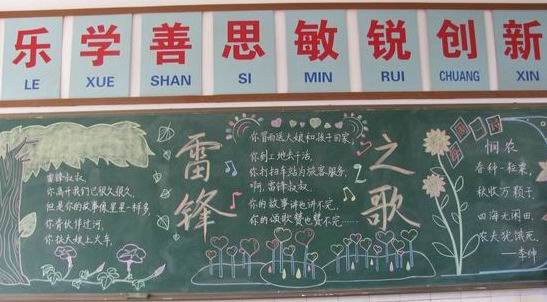 乐 学 善 思 敏 锐 创 新
LE XUE SHAN SI MIN RUI CHUANG XIN
雷锋
之歌
雷锋叔叔,
你离开我们已很久很久
但是你的故事像星星一样多,
你背伙伴过河,
你扶大娘上大车,
你冒雨送大娘和孩子回家,
你到工地去干活,
你打扫车站为旅客服务,
啊,雷锋叔叔,
你的故事讲也讲不完,
你的颂歌赞也赞不完……
悯农
春种一粒粟,
秋收万颗子,
四海无闲田,
农夫犹饿死.
——李绅